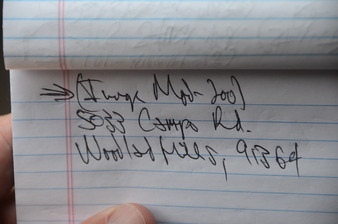 (Image Mod-2001
5033 Campo Rd.
Woodland Hills, 91364